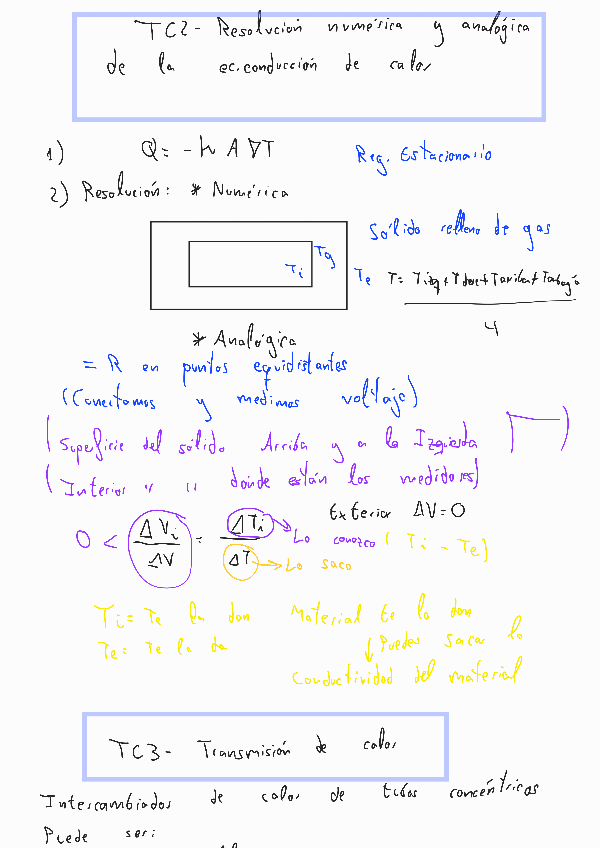 TC2 - Resolución numérica y analógica
de la ec. conducción de calor
1) Q = - h A ∇T Reg. Estacionario
2) Resolución: * Numérica
Sólido relleno de gas
Ti Tg Te T = Tizq + Tdere + Tarriba + Tabajo
4
* Analógica
= R en puntos equidistantes
(Conectamos y medimos voltaje)
(Superficie del sólido Arriba y a la Izquierda )
(Interior " " donde están los medidores)
Exterior ΔV = 0
0 < ΔVi / ΔV = ΔTi / ΔT → Lo conozco (Ti - Te)
→ Lo saco
Ti = Te la dan Material te lo dan
Te = Te la da ↓ Puedes sacar la
conductividad del material
TC3 - Transmisión de calor
Intercambiador de calor de tubos concéntricos
Puede ser: